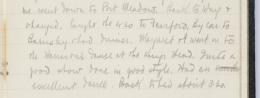 we went down to Port Meadow. Back to Wray &
changed. Caught the up to Fairford, by car to
Barnsley had Dinner. Margaret & I went on to
the Harriers Dance at the Kings Head. Quite a
good show done in good style. Had an
excellent dance. Back to bed about 3 30